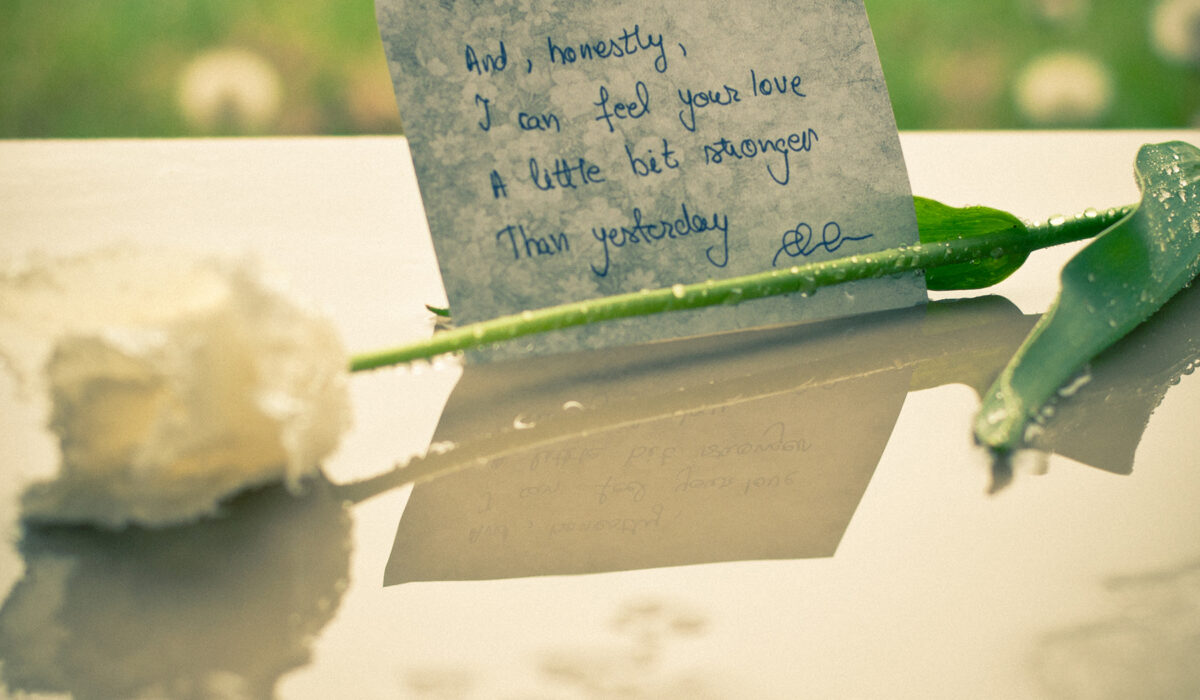 And, honestly,
I can feel your love
A little bit stronger
Than yesterday